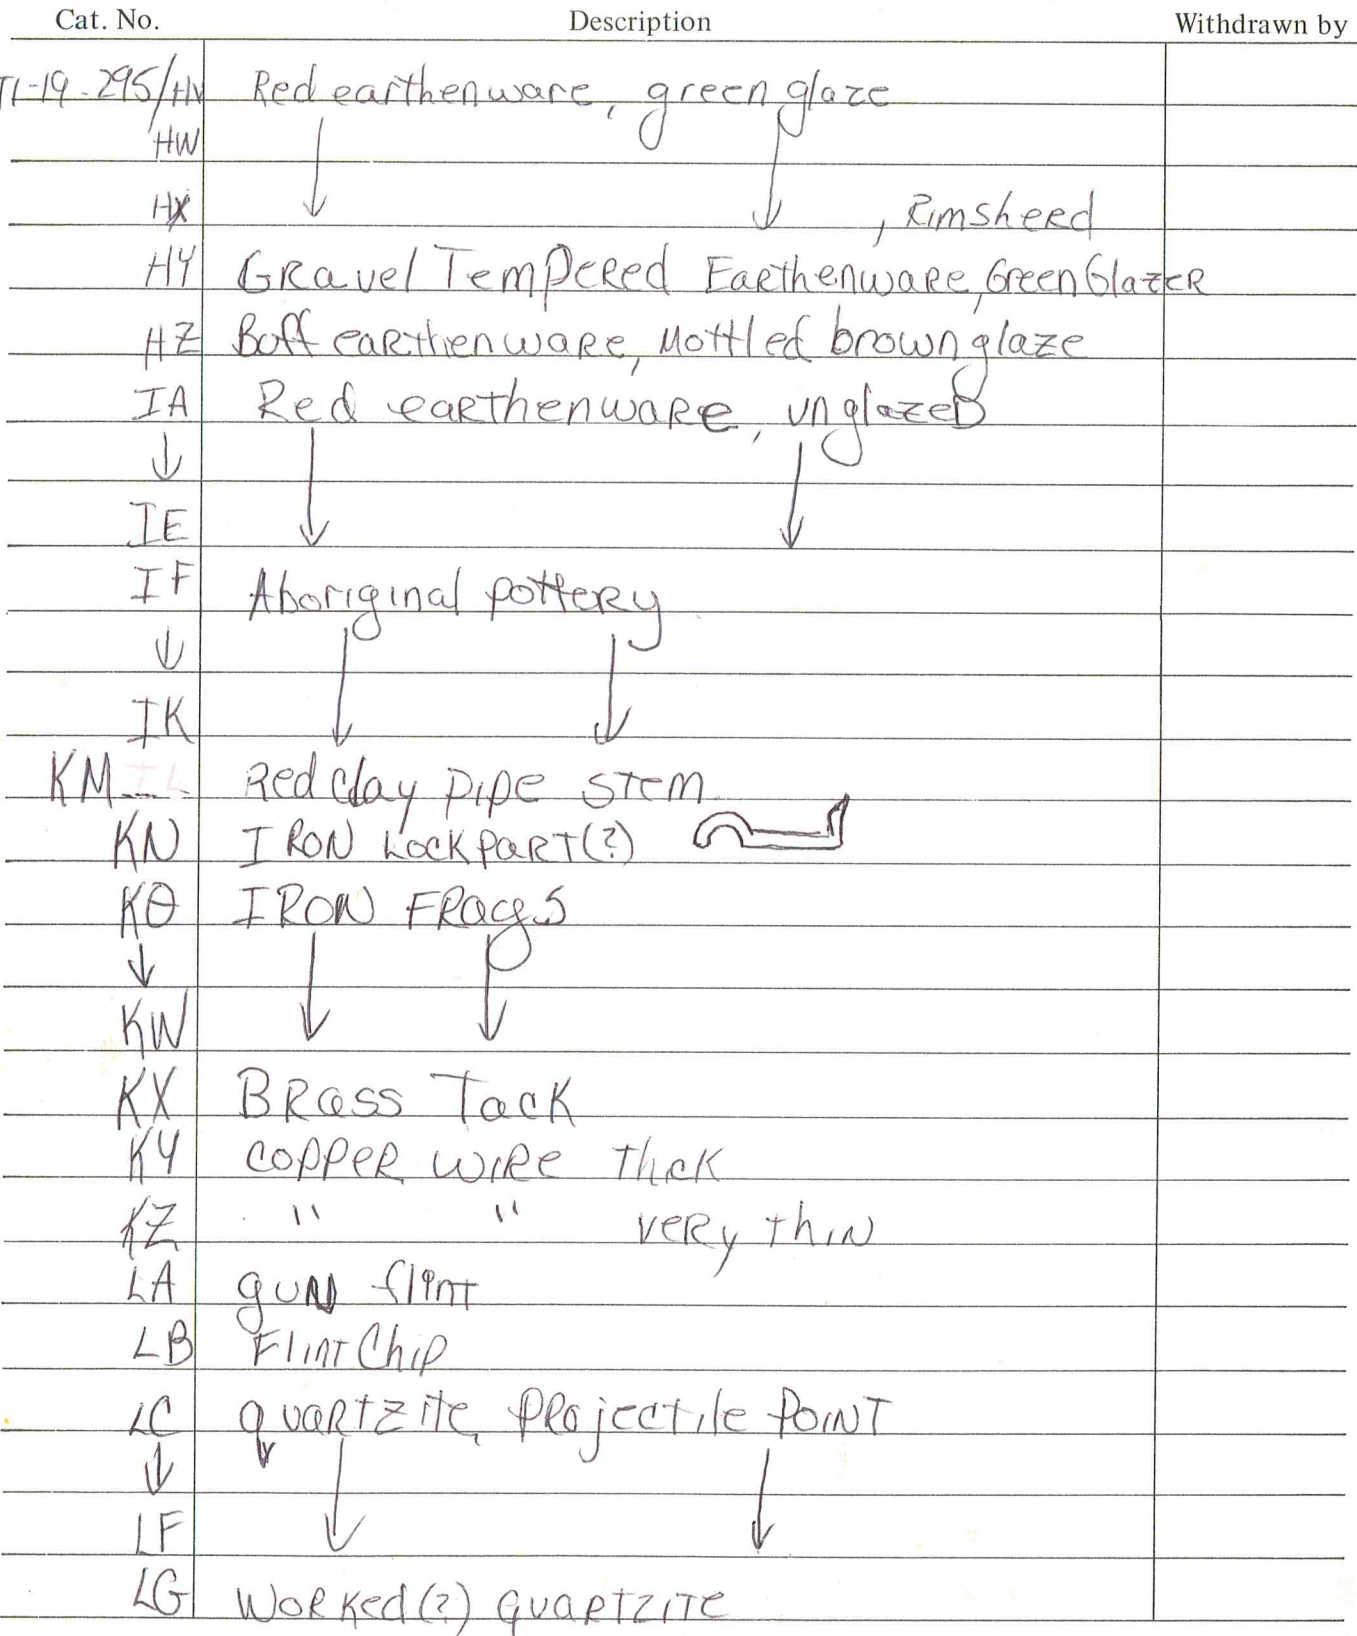 Cat. No. Description Withdrawn by
71-19-295/HV Red earthenware, green glaze
HW ↓ ↓
HX , Rimsherd
HY Gravel Tempered Earthenware, Green Glazer
HZ Buff earthenware, Mottled brown glaze
IA Red earthenware, unglazed
↓ ↓ ↓
IE
IF Aboriginal pottery
↓ ↓ ↓
IK
KM IL Red Clay pipe stem
KN IRON Lock part (?)
KO IRON FRags
↓ ↓ ↓
KW
KX BRass Tack
KY COPPER WIRE Thick
KZ " " very thin
LA gun flint
LB Flint Chip
LC quartzite projectile POINT
↓ ↓ ↓
LF
LG Worked (?) quartzite